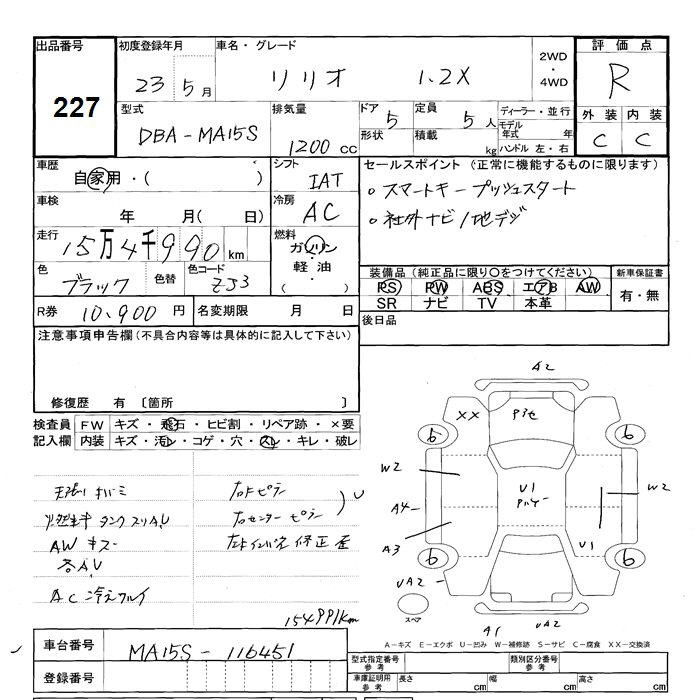 出品番号 初度登録年月 車名・グレード 2WD・4WD 評価点
227 23 5月 リリオ 1.2X R
型式 排気量 ドア 5 定員 5人 ディーラー・並行 外装 内装
DBA-MA15S 1200cc 形状 積載 kg モデル年式 年 ハンドル 左・右 C C
車歴 自家用・( ) シフト IAT セールスポイント (正常に機能するものに限ります)
車検 年 月(日) 冷房 AC 。スマートキー プッシュスタート
。社外ナビ/地デジ
走行 15万4千990km 燃料 ガソリン・軽油・
色 ブラック 色替 色コード ZJ3 装備品(純正品に限り〇をつけてください) 新車保証書
PS PW ABS エアB AW 有・無
SR ナビ TV 本革
R券 10,900円 名変期限 月 日 後日品
注意事項申告欄(不具合内容等は具体的に記入して下さい)
修復歴 有 〔箇所 〕
検査員 FW キズ・飛石・ヒビ割・リペア跡・×要
記入欄 内装 キズ・汚レ・コゲ・穴・スレ・キレ・破レ
AW キズ
各A,U
AC 冷え
右センターピラー
修正歪
154991km
A2
XX
6 6
W2 U1 W2
A4
A3 U1
6 6
UA2
スペア
A1 UA2
A-キズ E-エクボ U-凹み W-補修跡 S-サビ C-腐食 XX-交換済
車台番号 MA15S-116451
登録番号
型式指定番号 参考 類別区分番号 参考
車庫証明用 参考 長さ cm 幅 cm 高さ cm